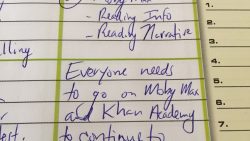 - Reading Info
- Reading Narrative
Everyone needs
to go on Moby Max
and Khan Academy
to continue to
1.
2.
3.
4.
5.
6.
7.